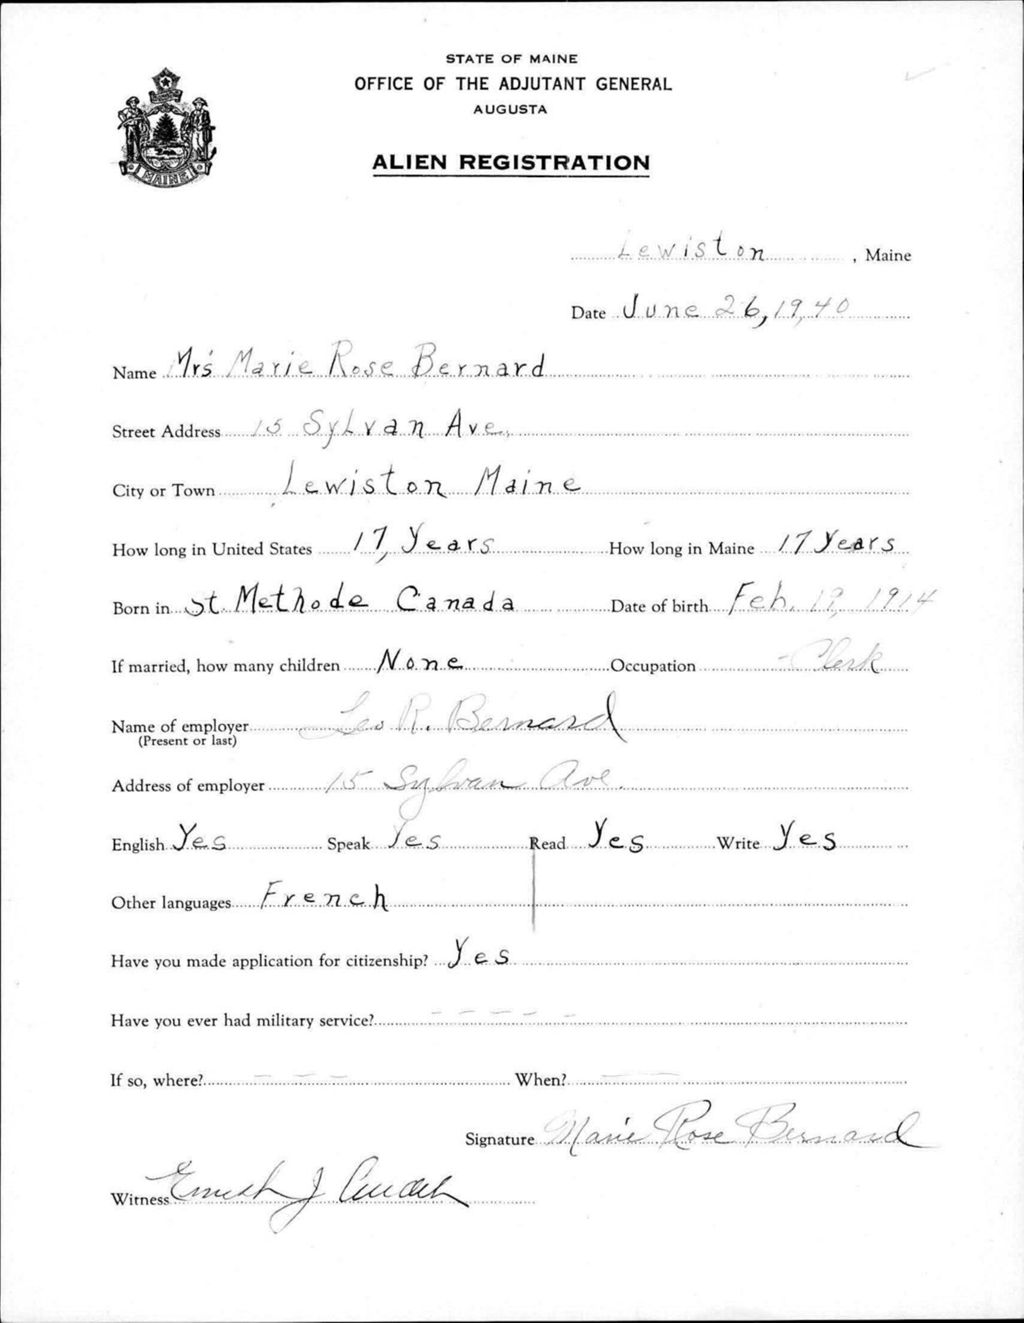 STATE OF MAINE
OFFICE OF THE ADJUTANT GENERAL
AUGUSTA
MAINE
ALIEN REGISTRATION
Lewiston, Maine
Date June 26, 1940
Name Mrs Marie Rose Bernard
Street Address 15 Sylvan Ave.
City or Town Lewiston Maine
How long in United States 17 Years How long in Maine 17 Years
Born in St. Methode Canada Date of birth Feb. 19, 1914
If married, how many children None Occupation Clerk
Name of employer Leo R. Bernard
(Present or last)
Address of employer 15 Sylvan Ave.
English Yes Speak Yes Read Yes Write Yes
Other languages French
Have you made application for citizenship? Yes
Have you ever had military service? - - - - -
If so, where? - - - When? - -
Signature Marie Rose Bernard
Witness Ernest J